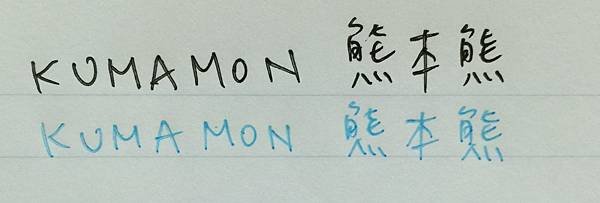 KUMAMON 熊本熊
KUMAMON 熊本熊